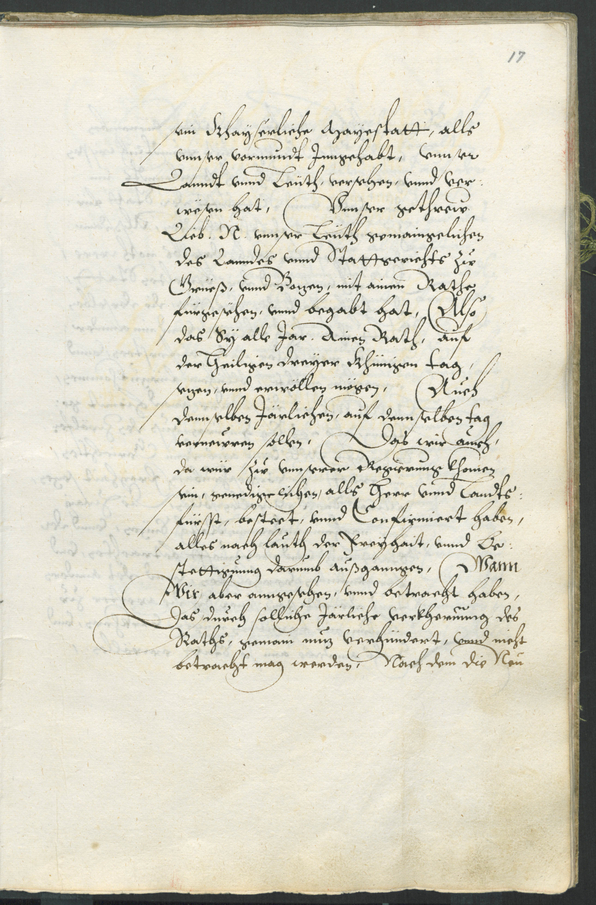 17
ein Khayserliche Mayestatt, alls
vnnser vormundt Inngehabt, vnnser
Lanndt vnnd Leüth, versehen, vnnd ver:
wesen hat, Vnnser gethrew
Lieb. N. vnnser Leüth gemaingelichen
des Lanndes vnnd Stattgerichts zu
Grieß, vnnd Bozen, mit ainem Rathe
fürgesehen, vnnd begabt hat, Also
das Sy alle Jar. Ainen Rath, auf
der Heiligen dreyer Khünigen tag,
sezen, vnnd erwöllen mögen, Auch
dennselben Järlichen, auf dennselben tag
vernewren sollen, Das wir auch,
da wir zu vnnserer Regierung khomen
sein, genedigelichen, alls Herr vnnd Landts:
fürsst, besteet, vnnd Confirmiert haben,
alles nach lauth der Freyhait, vnnd Be:
stettigung darumb außganngen, Wann
Wir aber anngesehen, vnnd betracht haben,
Das durch solliche Järliche verkherung des
Raths, gemain nuz verhündert, vnnd nicht
betracht mag werden, Nach dem die Neü